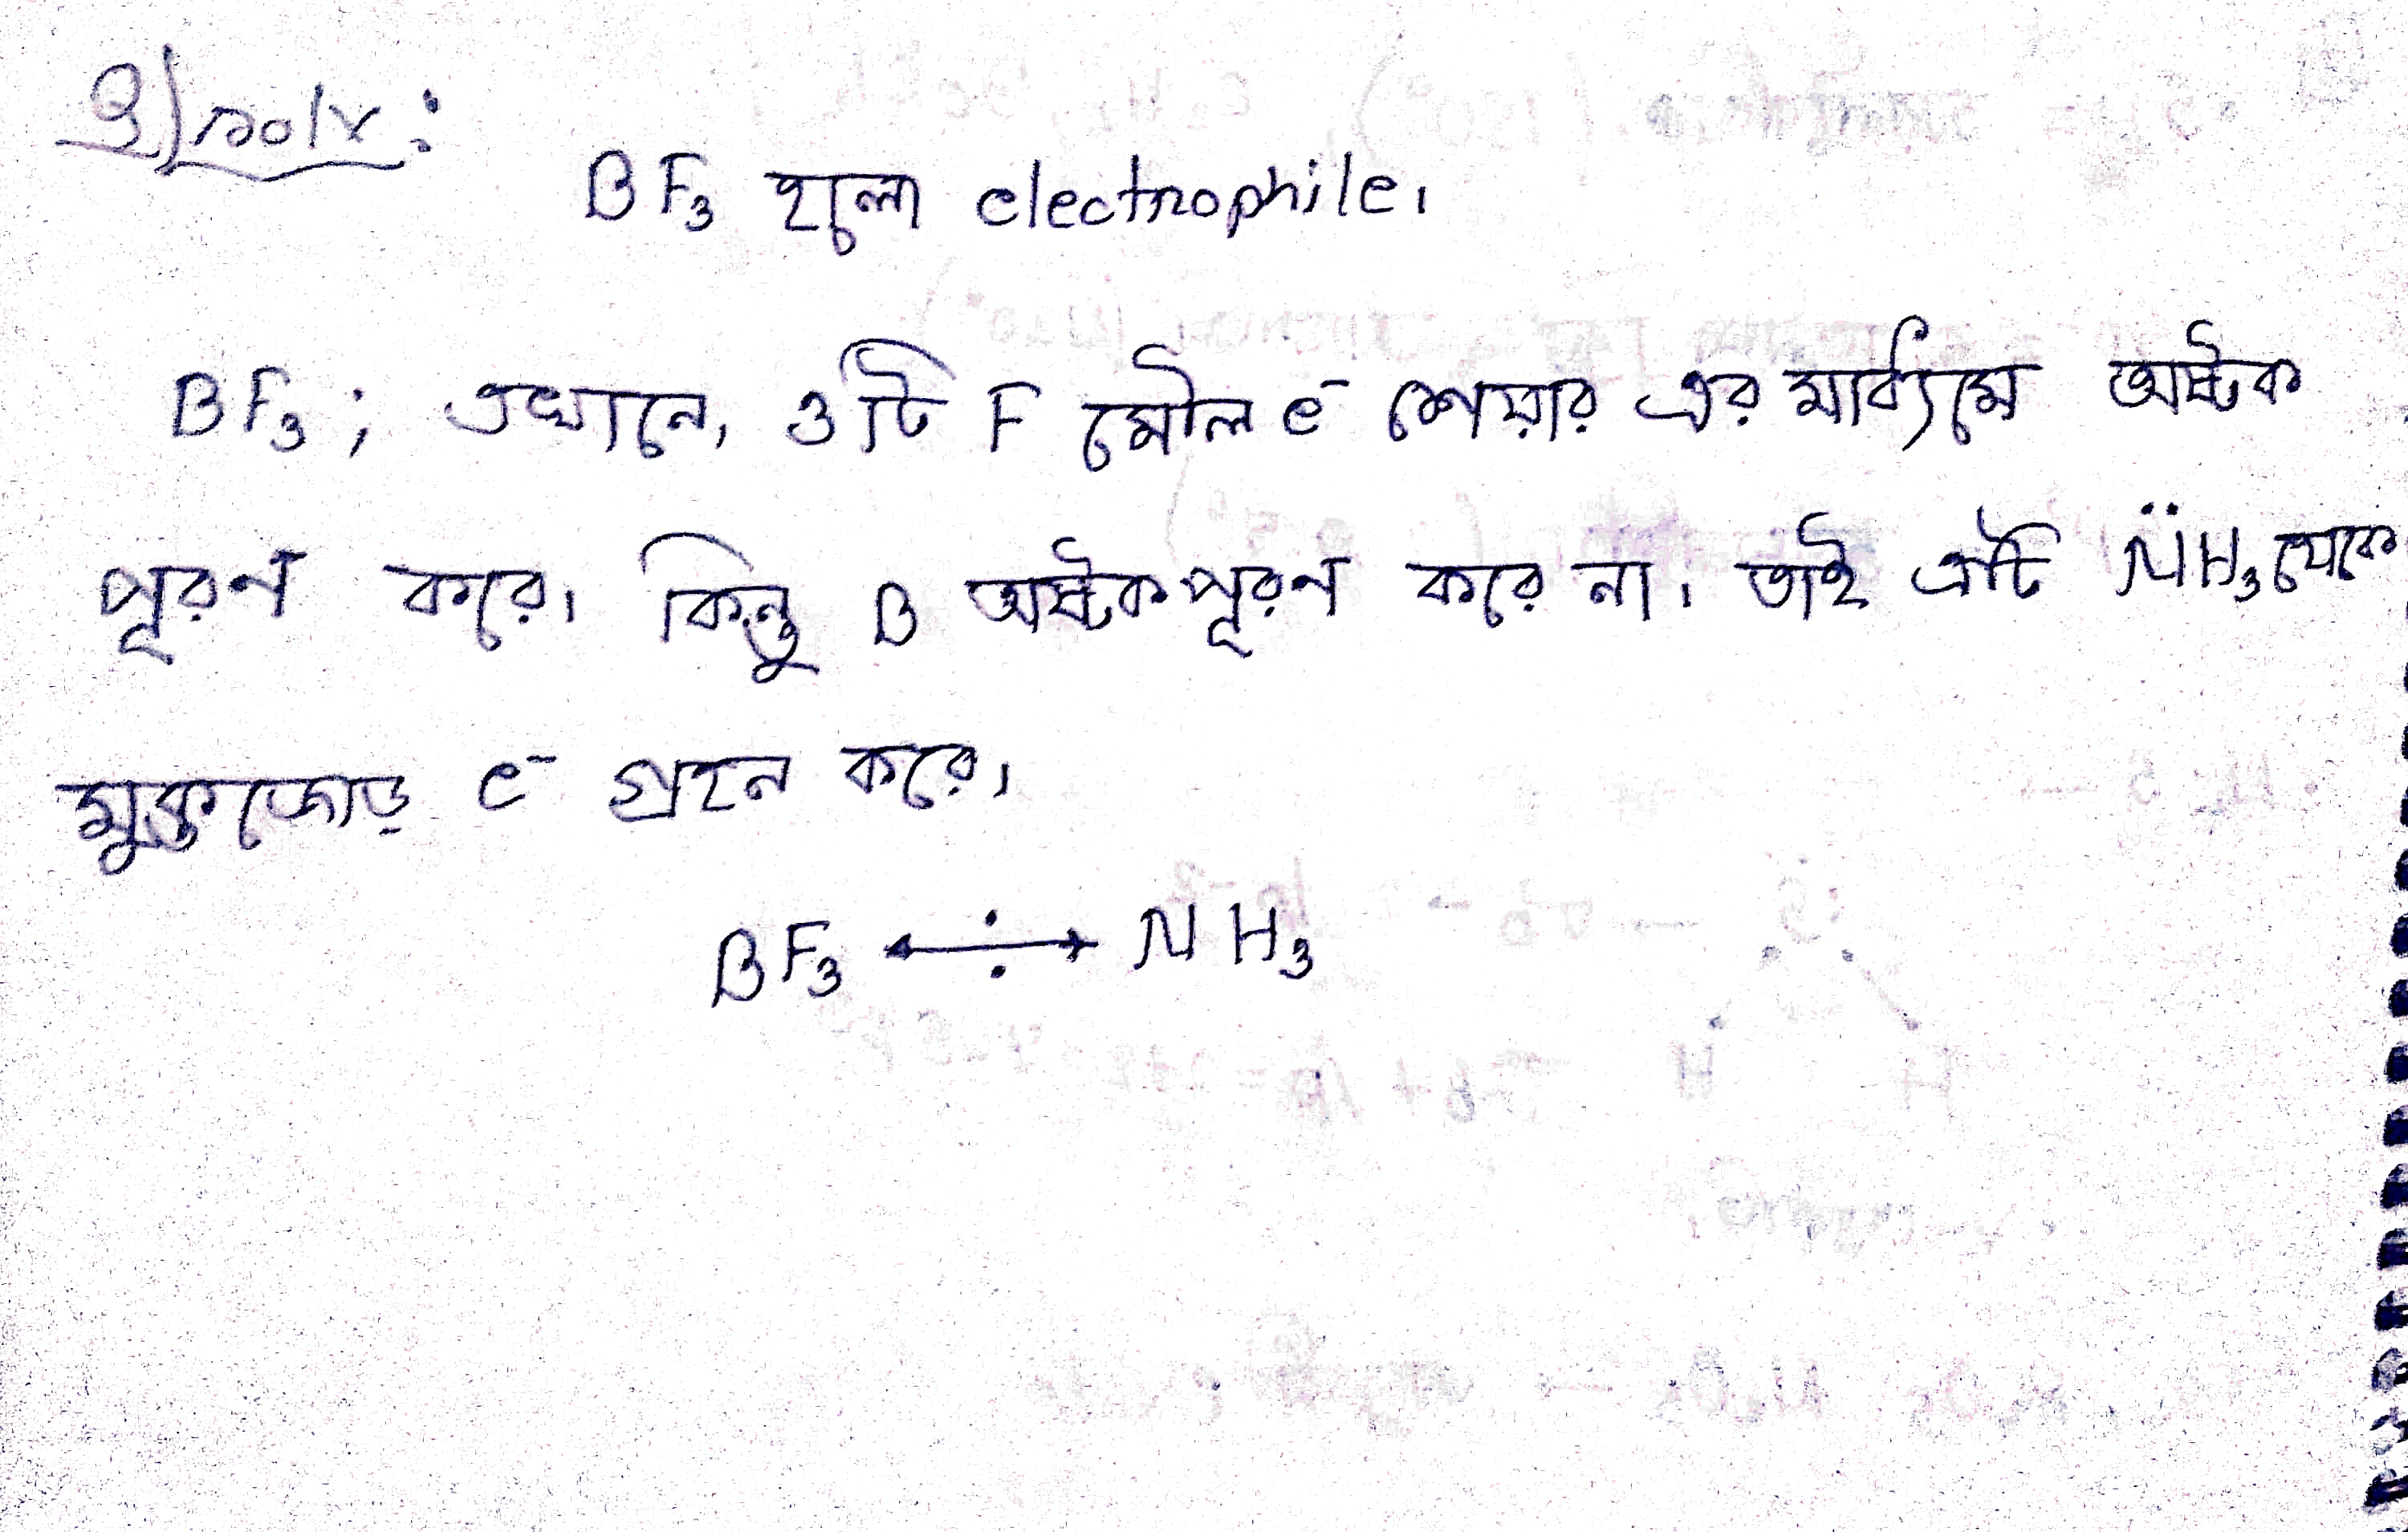 9) solv:
BF₃ হলো electrophile।
BF₃; এখানে, ৩টি F মৌল e⁻ শেয়ার এর মাধ্যমে অষ্টক
পূরণ করে। কিন্তু B অষ্টক পূরণ করে না। তাই এটি N̈H₃ থেকে
মুক্তজোড় e⁻ গ্রহন করে।
BF₃ ⟷ NH₃